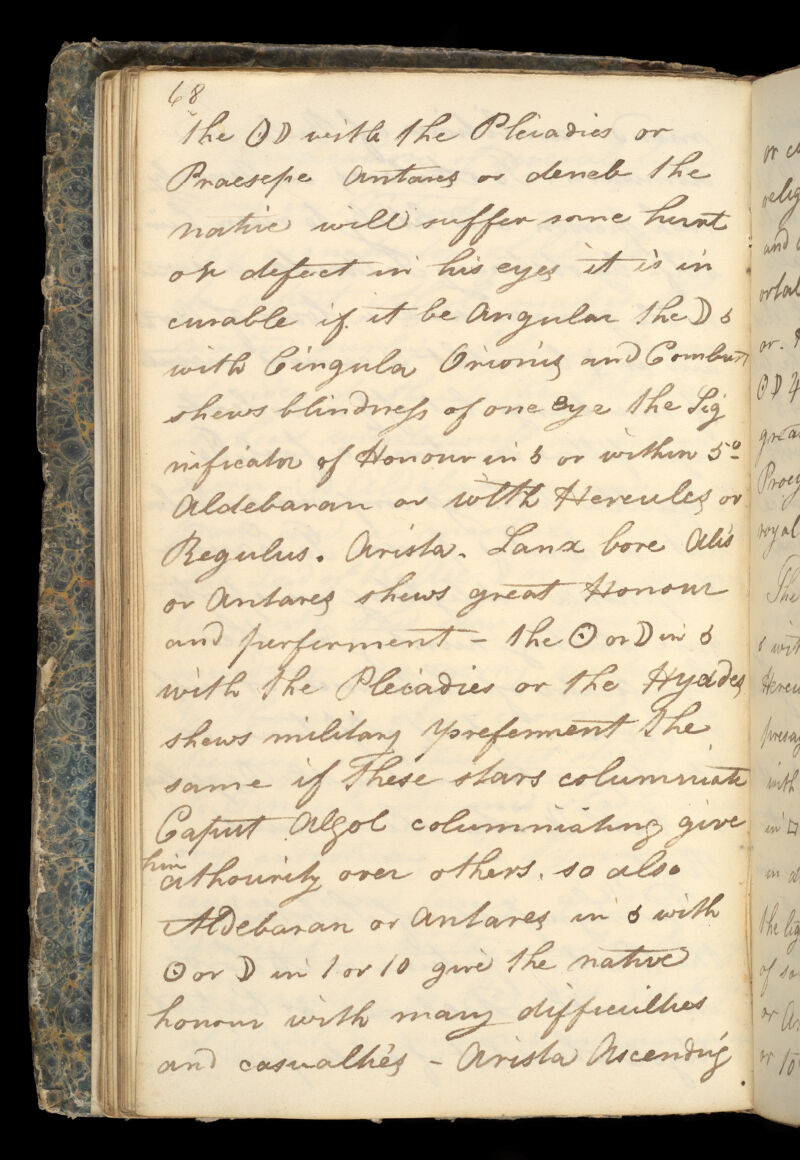 68
the ☉☽ with the Pleiadies or
Praesepe Antares or deneb the
native will suffer some hurt
or defect in his eyes it is in
curable if it be Angular the ☽ ☌
with Cingula Orionis and Combust
shews blindness of one eye the Sig
nificator of Honour in ☌ or within 5°
Aldebaran or with Hercules or
Regulus. Arista. Lanx bore alis
or Antares shews great Honour
and perferment – the ☉ or ☽ in ☌
with the Pleiadies or the Hyades
shews military preferment the
same if These stars columniate
Caput Algol columniating give
him athourity over others. so also
Aldebaran or Antares in ☌ with
☉ or ☽ in 1 or 10 give the native
honour with many difficulties
and casualties – Arista Ascending
or
relig
and
ortal
or.
☉☽♃
grea
Procy
royal
The
☌ with
Hercu
presag
with
in □
in
the lig
of so
or
or 10